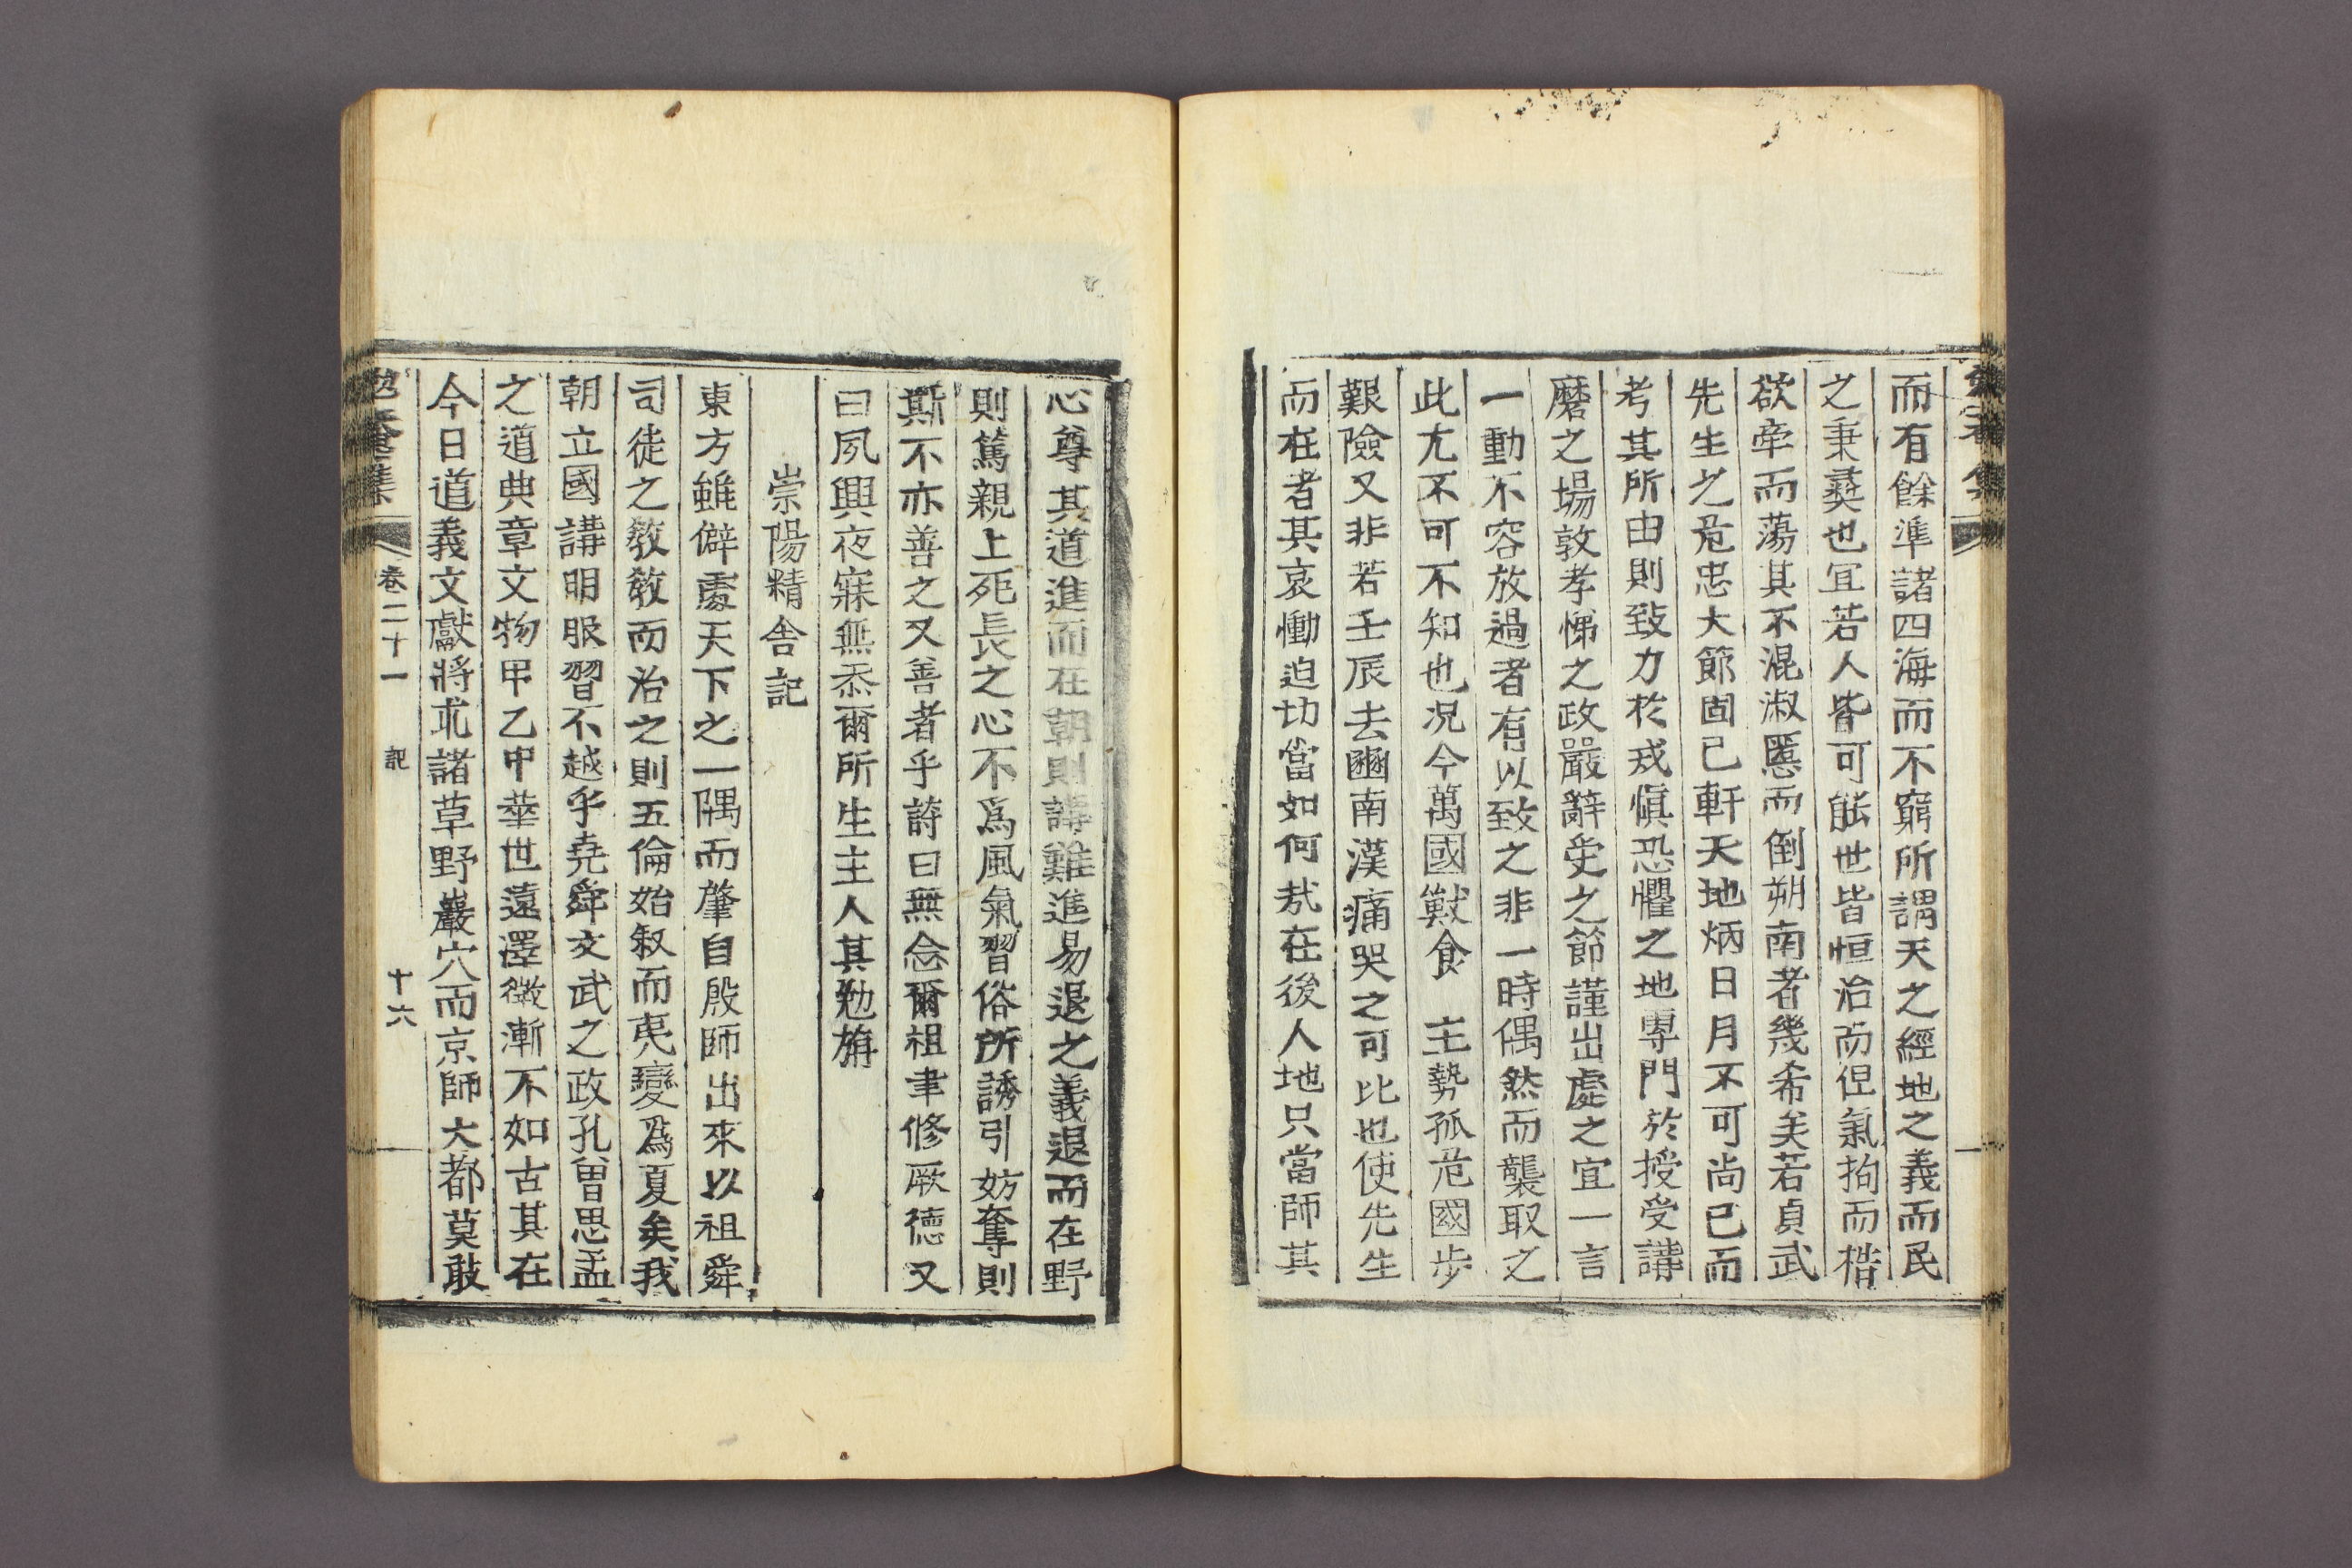 而有餘準諸四海而不窮所謂天之經地之義而民
之秉彛也宜若人皆可能世皆恒治而但氣拘而梏
欲牽而蕩其不混淑慝而倒朔南者幾希矣若貞武
先生之危忠大節固已軒天地炳日月不可尚已而
考其所由則致力於戒愼恐懼之地專門於授受講
磨之場敦孝悌之政嚴辭受之節謹出處之宜一言
一動不容放過者有以致之非一時偶然而襲取之
此尤不可不知也况今萬國獸食 主勢孤危國步
艱險又非若壬辰去豳南漢痛哭之可比也使先生
而在者其哀慟迫切當如何㦲在後人地只當師其
心尊其道進而在朝則講難進易退之義退而在野
則篤親上死長之心不爲風氣習俗所誘引妨奪則
斯不亦善之又善者乎詩曰無念爾祖聿修厥德又
曰夙興夜寐無忝爾所生主人其勉旃
崇陽精舍記
東方雖僻處天下之一隅而肇自殷師出來以祖舜
司徒之敎敎而治之則五倫始叙而夷變爲夏矣我
朝立國講明服習不越乎堯舜文武之政孔曾思孟
之道典章文物甲乙中華世遠澤微漸不如古其在
今日道義文獻將求諸草野巖穴而京師大都莫敢
勉菴集 卷二十一 記 十六